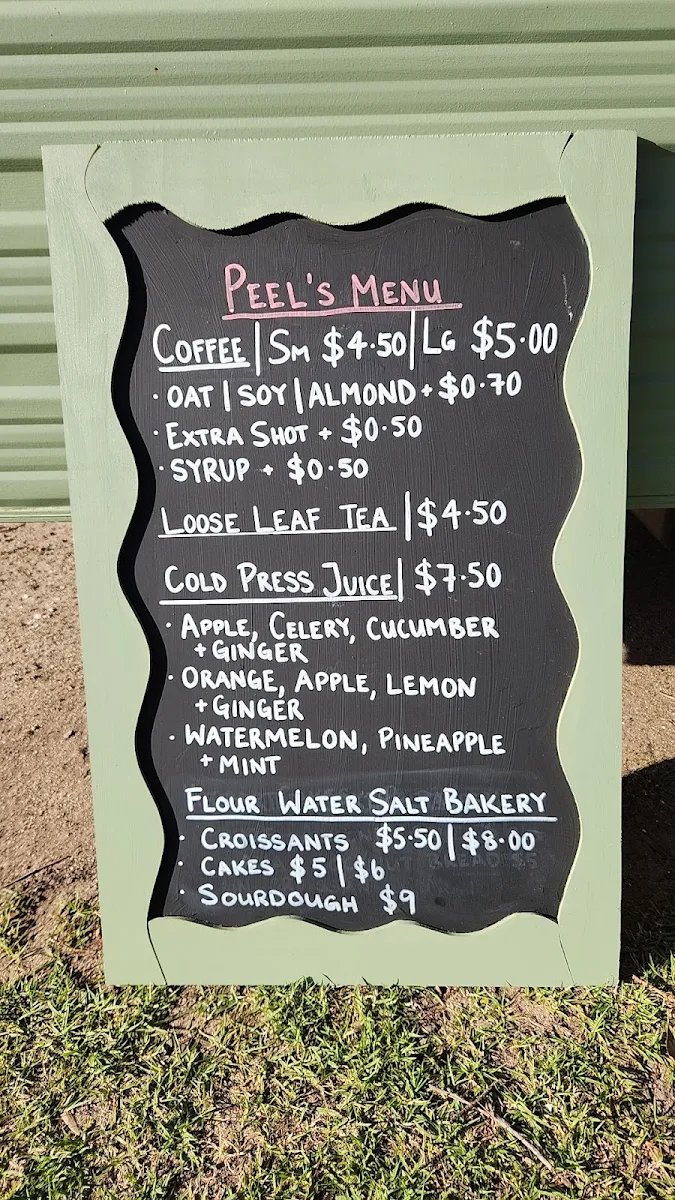 PEEL'S MENU
COFFEE | SM $4.50 | LG $5.00
· OAT | SOY | ALMOND + $0.70
· EXTRA SHOT + $0.50
· SYRUP + $0.50
LOOSE LEAF TEA | $4.50
COLD PRESS JUICE | $7.50
· APPLE, CELERY, CUCUMBER
+ GINGER
· ORANGE, APPLE, LEMON
+ GINGER
· WATERMELON, PINEAPPLE
+ MINT
FLOUR WATER SALT BAKERY
· CROISSANTS $5.50 | $8.00
· CAKES $5 | $6
· SOURDOUGH $9